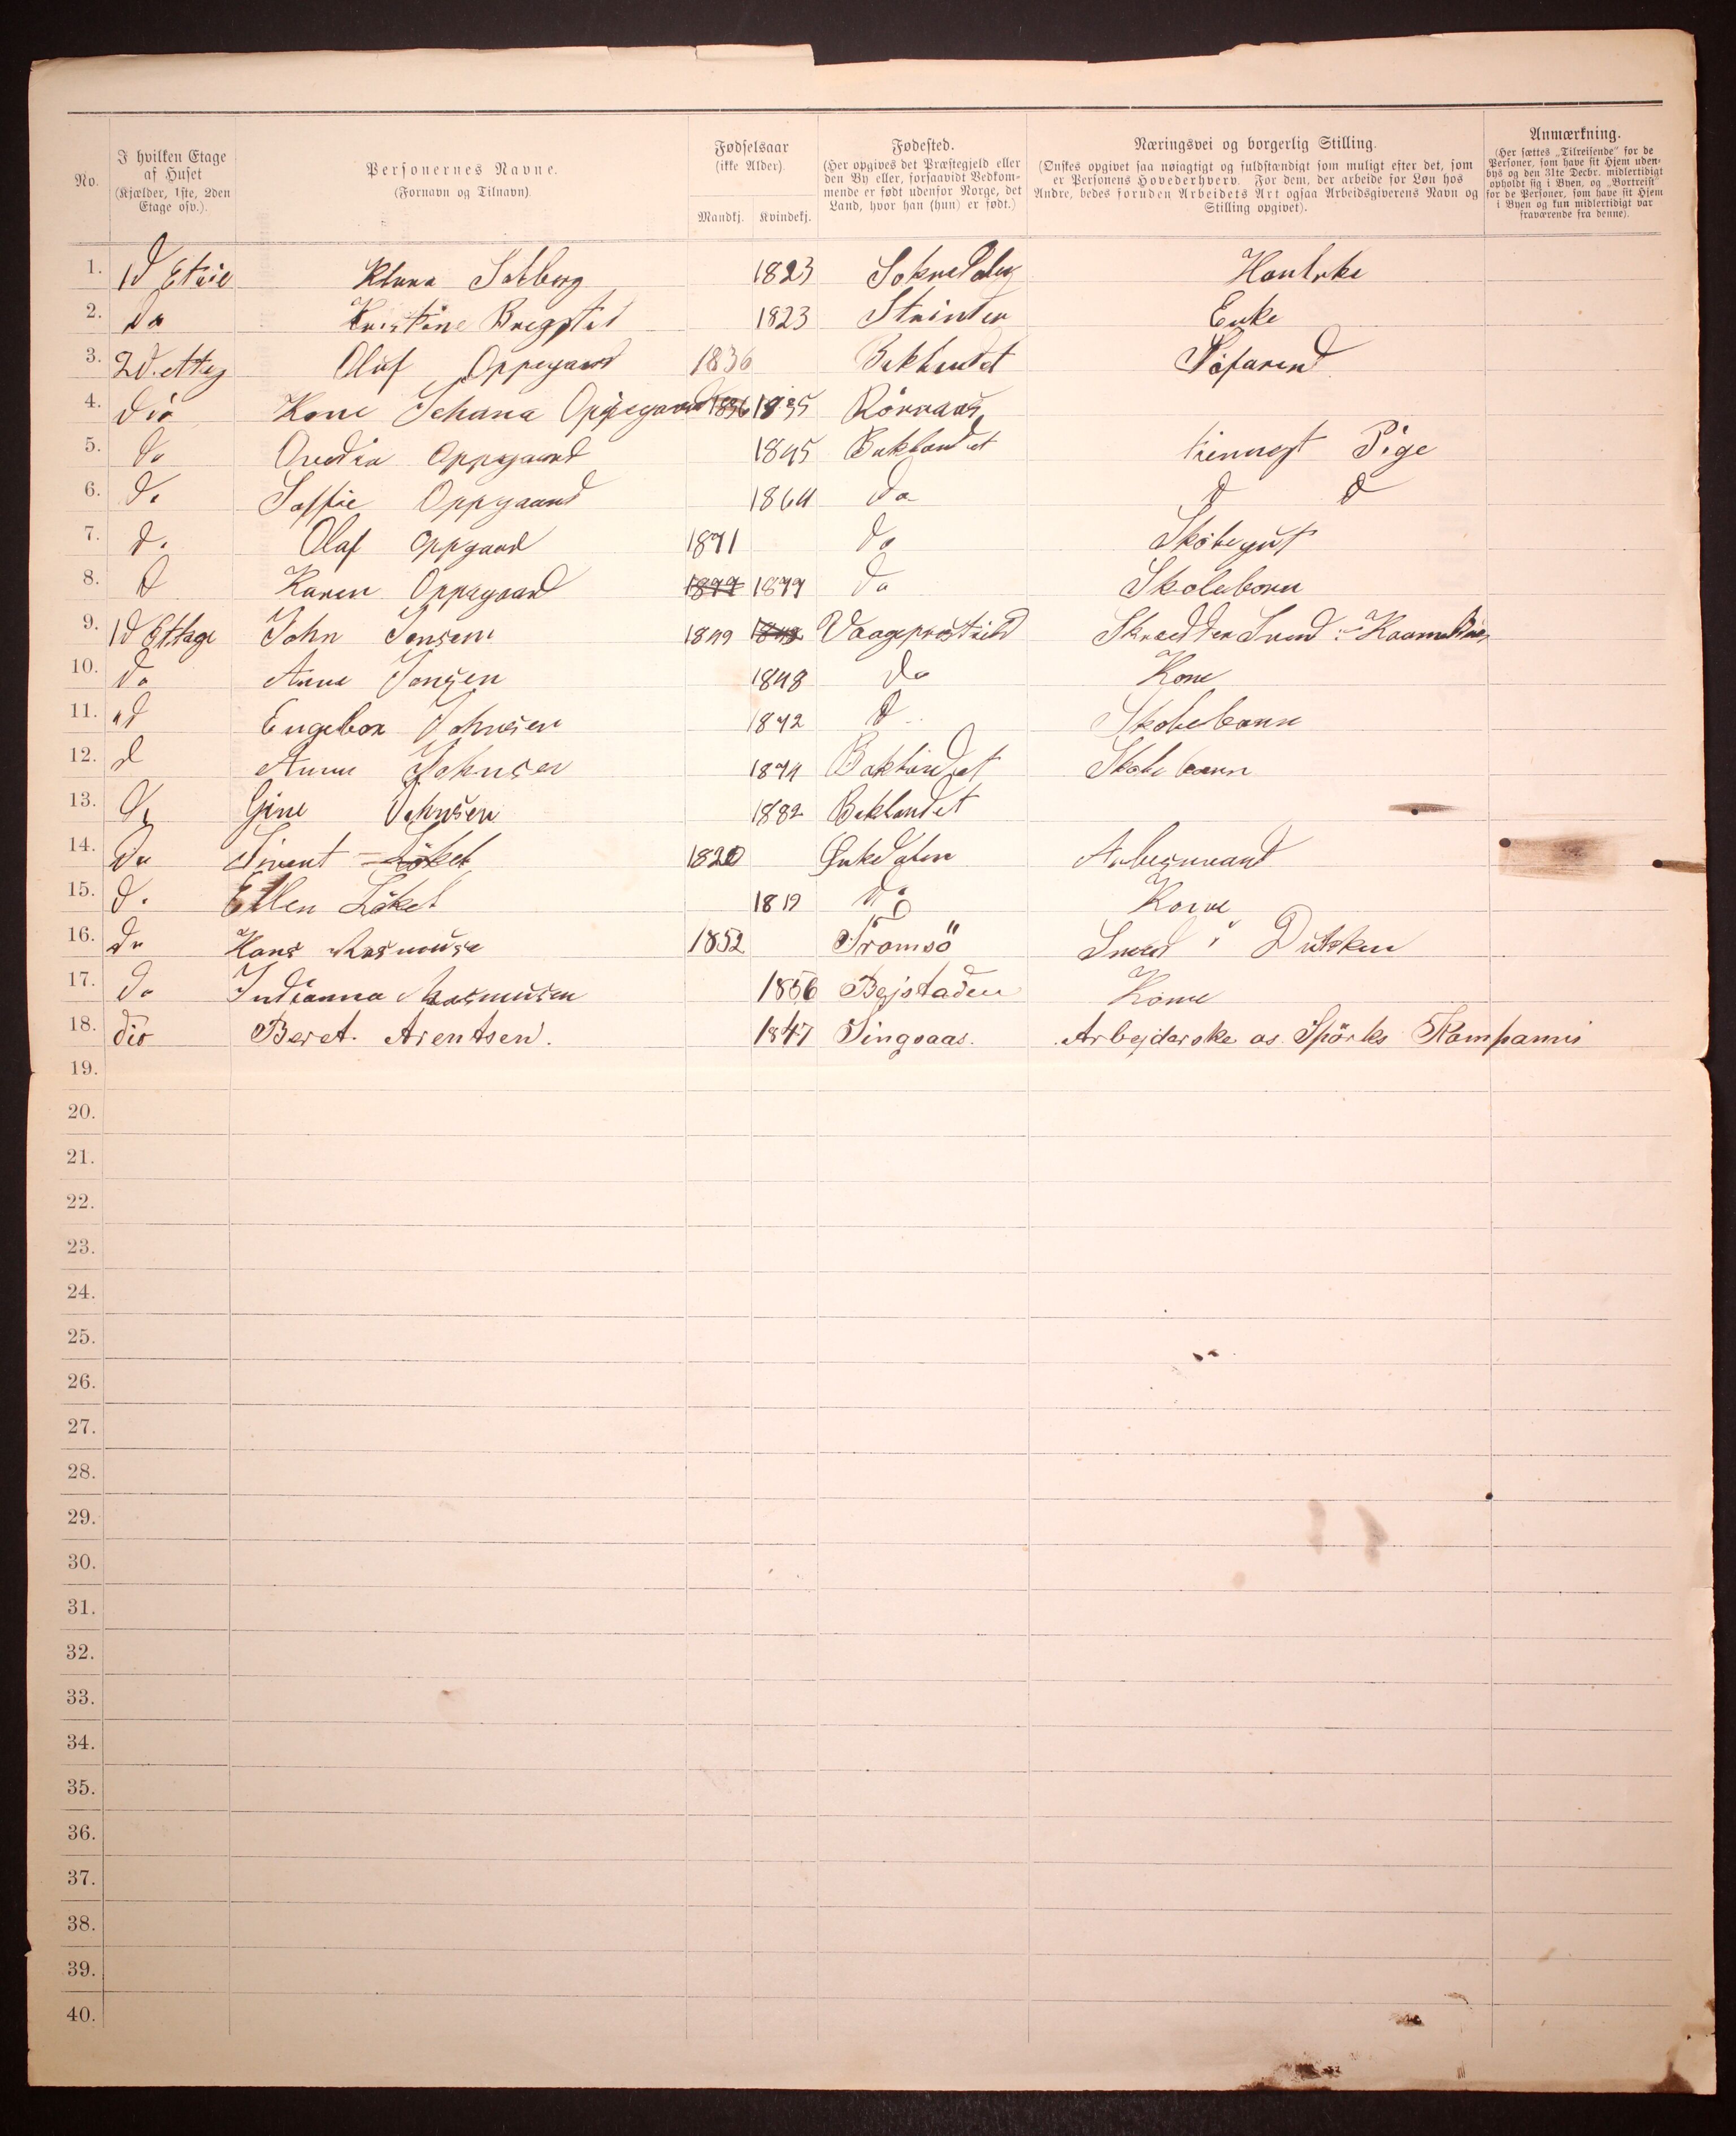 No.
I hvilken Etage af Huset (Kjælder, 1ste, 2den Etage osv.).
Personernes Navne. (Fornavn og Tilnavn).
Fødselsaar (ikke Alder). Mandkj. Kvindekj.
Fødested. (Her opgives det Præstegjeld eller den By eller, forsaavidt Vedkommende er født udenfor Norge, det Land, hvor han (hun) er født.)
Næringsvei og borgerlig Stilling. (Ønskes opgivet saa nøiagtigt og fuldstændigt som muligt efter det, som er Personens Hovederhverv. For dem, der arbeide for Løn hos Andre, bedes foruden Arbeidets Art ogsaa Arbeidsgiverens Navn og Stilling opgivet).
Anmærkning. (Her sættes „Tilreisende“ for de Personer, som have sit Hjem udenbys og den 31te Decbr. midlertidigt opholdt sig i Byen, og „Bortreist“ for de Personer, som have sit Hjem i Byen og kun midlertidigt var fraværende fra denne).
1. Solberg 1823
2. do Kristine 1823 Strinten Enke
3. Oluf Oppegaard 1836 Baklandet Söfarend
4. dio Kone Oppegaard 1836 1835 Rörraas
5. do Oppegaard 1845 Baklandet Pige
6. do Soffie Oppgaard 1864 do d d
7. do Olaf Oppgaard 1871 do Skolegut
8. d Karen Oppegaard 1877 1877 do Skolebarn
9. 1d Ettage John Jensen 1849
10. do Anne Jonsen 1848 do Kone
11. d Johnsen 1872 d Skolebarn
12. d Anne Johnsen 1874 Baklandet Skole barn
13. do Gine Johnsen 1882 Baklandet
14. do Sivert Löket 1820
15. do Ellen Löket 1819 do Kone
16. do Hans Rasmuse 1852 Tromsö Smed i
17. do Rasmusen 1856 Bejstaden Kone
18. dio Beret. Arentsen. 1847 Singsaas. Arbejderske os. Spörks Kompanni
19.
20.
21.
22.
23.
24.
25.
26.
27.
28.
29.
30.
31.
32.
33.
34.
35.
36.
37.
38.
39.
40.